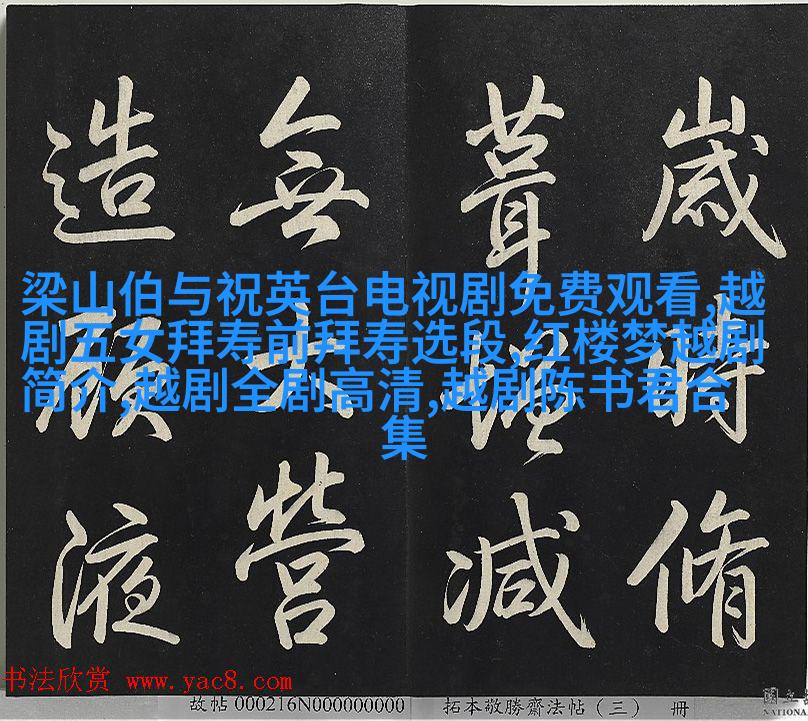 歲時脩
葺增減
無大營
造顧液
梁山伯与祝英台电视剧免费观看,越
剧五女拜寿前拜寿选段,红楼梦越剧
简介,越剧全剧高清,越剧陈书君合
集
书法欣赏 www.yac8.com
故帖 000216N000000000 拓本敬勝齋法帖（三） 冊
國立
NATIONA